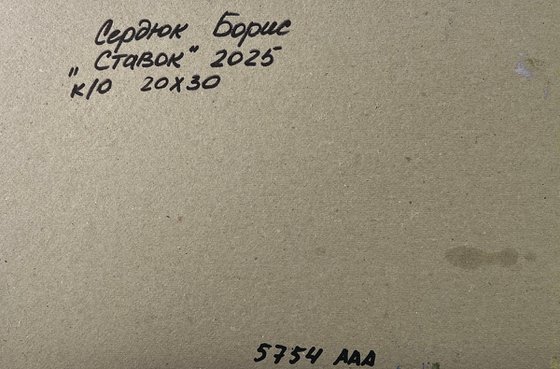 Сердюк Борис
„Ставок" 2025
к/о 20х30
5754 ААА